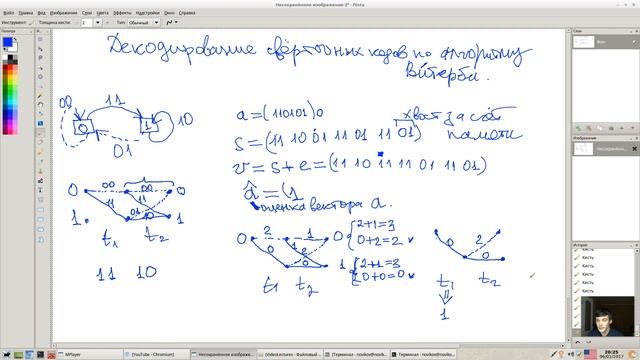 Несохранённое изображение 2* - Pinta
Файл Правка Вид Изображение Слои
Окно Справка
Инструмент Толщина кисти: 2 Тип: Обычный
Палитра
Декодирование свёрточных кодов по алгоритму
Витерби.
00 11 10
0 1
01
a=(110101)0
хвост за счёт
памяти
s=(11 10 01 11 01 11 01)
v=s+e=(11 10 11 11 01 11 01)
â=(1
оценка вектора a.
0 00 00 0
11 11
1 01 10 1
t1 t2
11 10
0 2 1 0 {2+1=3
0+2=2
0 1 2
0 1 {2+1=3
0+0=0
t1 t2
0 2
0
t1 t2
⇓
1
Слои
Изображения
История
Кисть
Кисть
Кисть
Кисть
Кисть
Кисть
MPlayer
[YouTube - Chromium]
[VideoLectures - Файловый
Несохранённое изображе...
20:25
06/01/2017